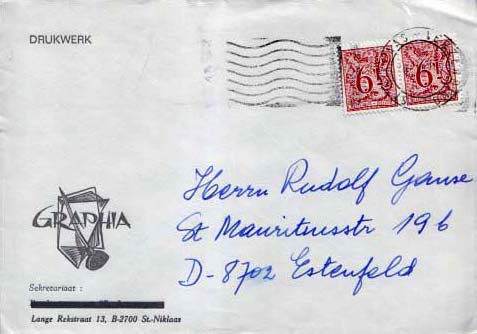 DRUKWERK
6
6
Herrn Rudolf Gause
St Mauritiusstr 19b
D-8702 Estenfeld
GRAPHIA
Sekretariaat :
Lange Rekstraat 13, B-2700 St.-Niklaas